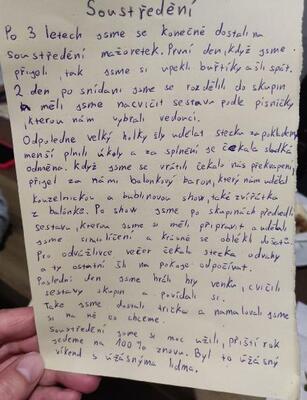 Soustředění
Po 3 letech jsme se konečně dostali na
soustředění mažoretek. První den, když jsme
přijeli, tak jsme si upekli buřtíky a šli spát.
2 den po snídani jsme se rozdělili do skupin
a měli jsme nacvičit sestavu podle písničky,
kterou nám vybrali vedoucí.
Odpoledne velký holky šly udělat stezku za pokladem,
menší plnili úkoly a za splnění je čekala sladká
odměna. Když jsme se vrátili čekalo nás překvapení,
přijel za námi balonkový baron, který nám udělal
kouzelnickou a bublinovou show, také zvířátka
z balónků. Po show jsme po skupinách předvedli
sestavu, kterou jsme si měli připravit a udělali
jsme si nalíčení a krásně se oblékli
Pro odvážlivce večer čekala stezka odvahy
a ty ostatní šli na pokoje odpočívat.
Poslední den jsme hráli hry venku, cvičili
sestavy skupin a povídali si.
Také jsme dostali trička a namalovali jsme
si na ně co chceme.
Soustředění jsme si moc užili, příští rok
jedeme na 100% znovu. Byl to úžasný
víkend s úžasnýma lidma.